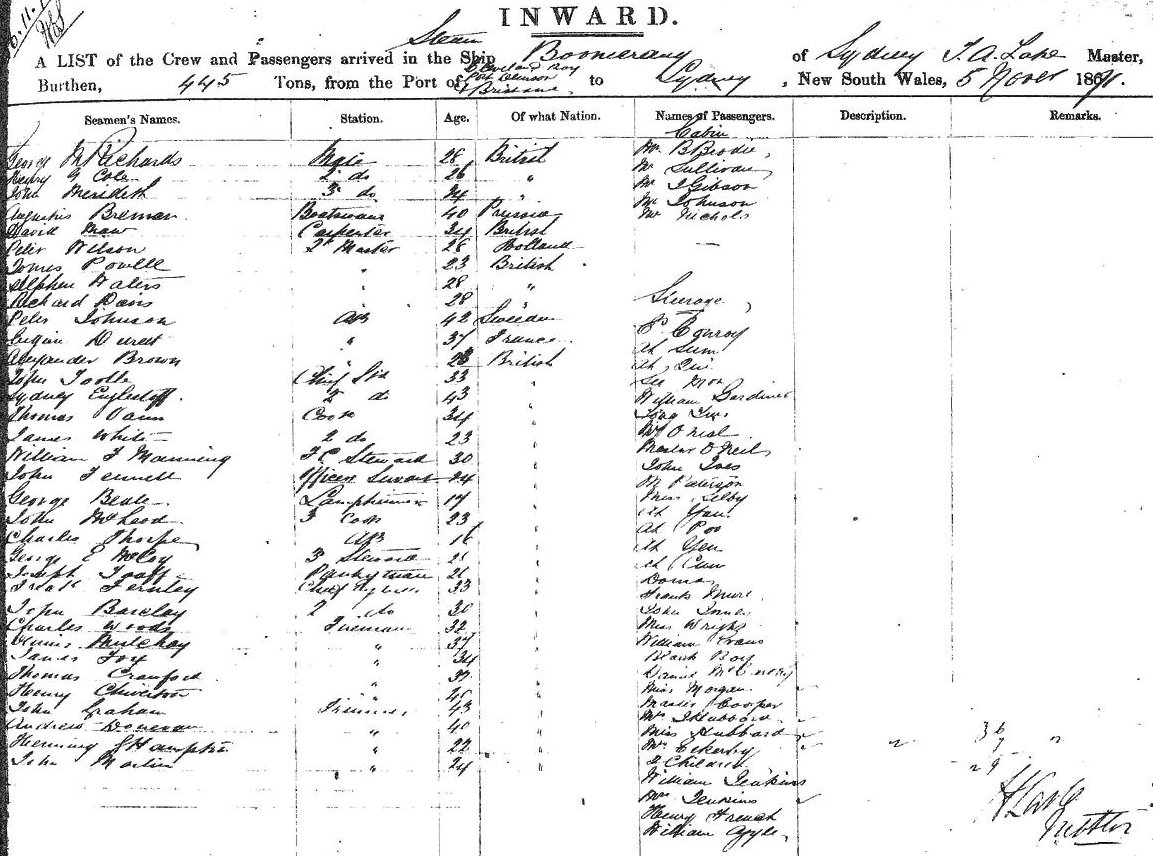 INWARD.
A LIST of the Crew and Passengers arrived in the Ship Steam Boomerang of Sydney J. A. Lake Master,
Burthen, 445 Tons, from the Port of Cleveland Bay Port Denison & Brisbane to Sydney, New South Wales, 5 Nover 1871.
Seamen's Names. Station. Age. Of what Nation. Names of Passengers. Description. Remarks.
Cabin
George Richards Mate 28 British Mr B Brodie
Henry G Cole 2 do 26 " Mr Sullivan
John Merideth 3 do 24 " Mr J Gibson
Mr Johnson
Augustus Breman Boatswain 40 Prussia Mr Nichols
David Maw Carpenter 34 British
Peter Wilson 2 Master 28 Holland
James Powell " 23 British
Stephen Waters " 28 "
Richard Davis " 28 Steerage
Peter Johnson AB 42 Sweden
P Conroy
Durest " 37 France Ah Sum
Alexander Brown " 28 British Ah
John Toole Chief Std 33 " See Mon
Sydney 2 do 43 " William Gardiner
Thomas Vann Cook 34 "
James White 2 do 23 " Mr O Neil
William F Manning F C Steward 30 " Master O Neil
John Fennell Officers Servant 24 " John Ives
M Paterson
George Beale Lamptrimmer 17 " Miss Selby
John McLeod 3 Cook 23 " Ah Yan
Charles Thorpe AB 16 " Ah Poo
George E McCoy 3 Steward 21 " Ah Yen
Joseph Pantryman 21 " Ah Cum
Fernley Chief 33 " Frank
John Barclay 2 do 30 " John Jones
Charles Woods Fireman 32 " Miss Wright
Mulchay " 37 " William Evans
James Fox " 34 " Black Boy
Thomas Cranford " 37 " Daniel McCarthy
Henry Chiverton " 25 " Miss Morgan
John Graham Trimmer 43 " Master Cooper
Mrs J Hubbard
Andrew Donevan " 40 " Miss Hubbard 36
Henning " 22 " Mrs Eckerby " 7 "
John Martin " 24 " 2 Children 29
William Jenkins
Mrs Jenkins
Henry French J A Lake
William Apyle Master